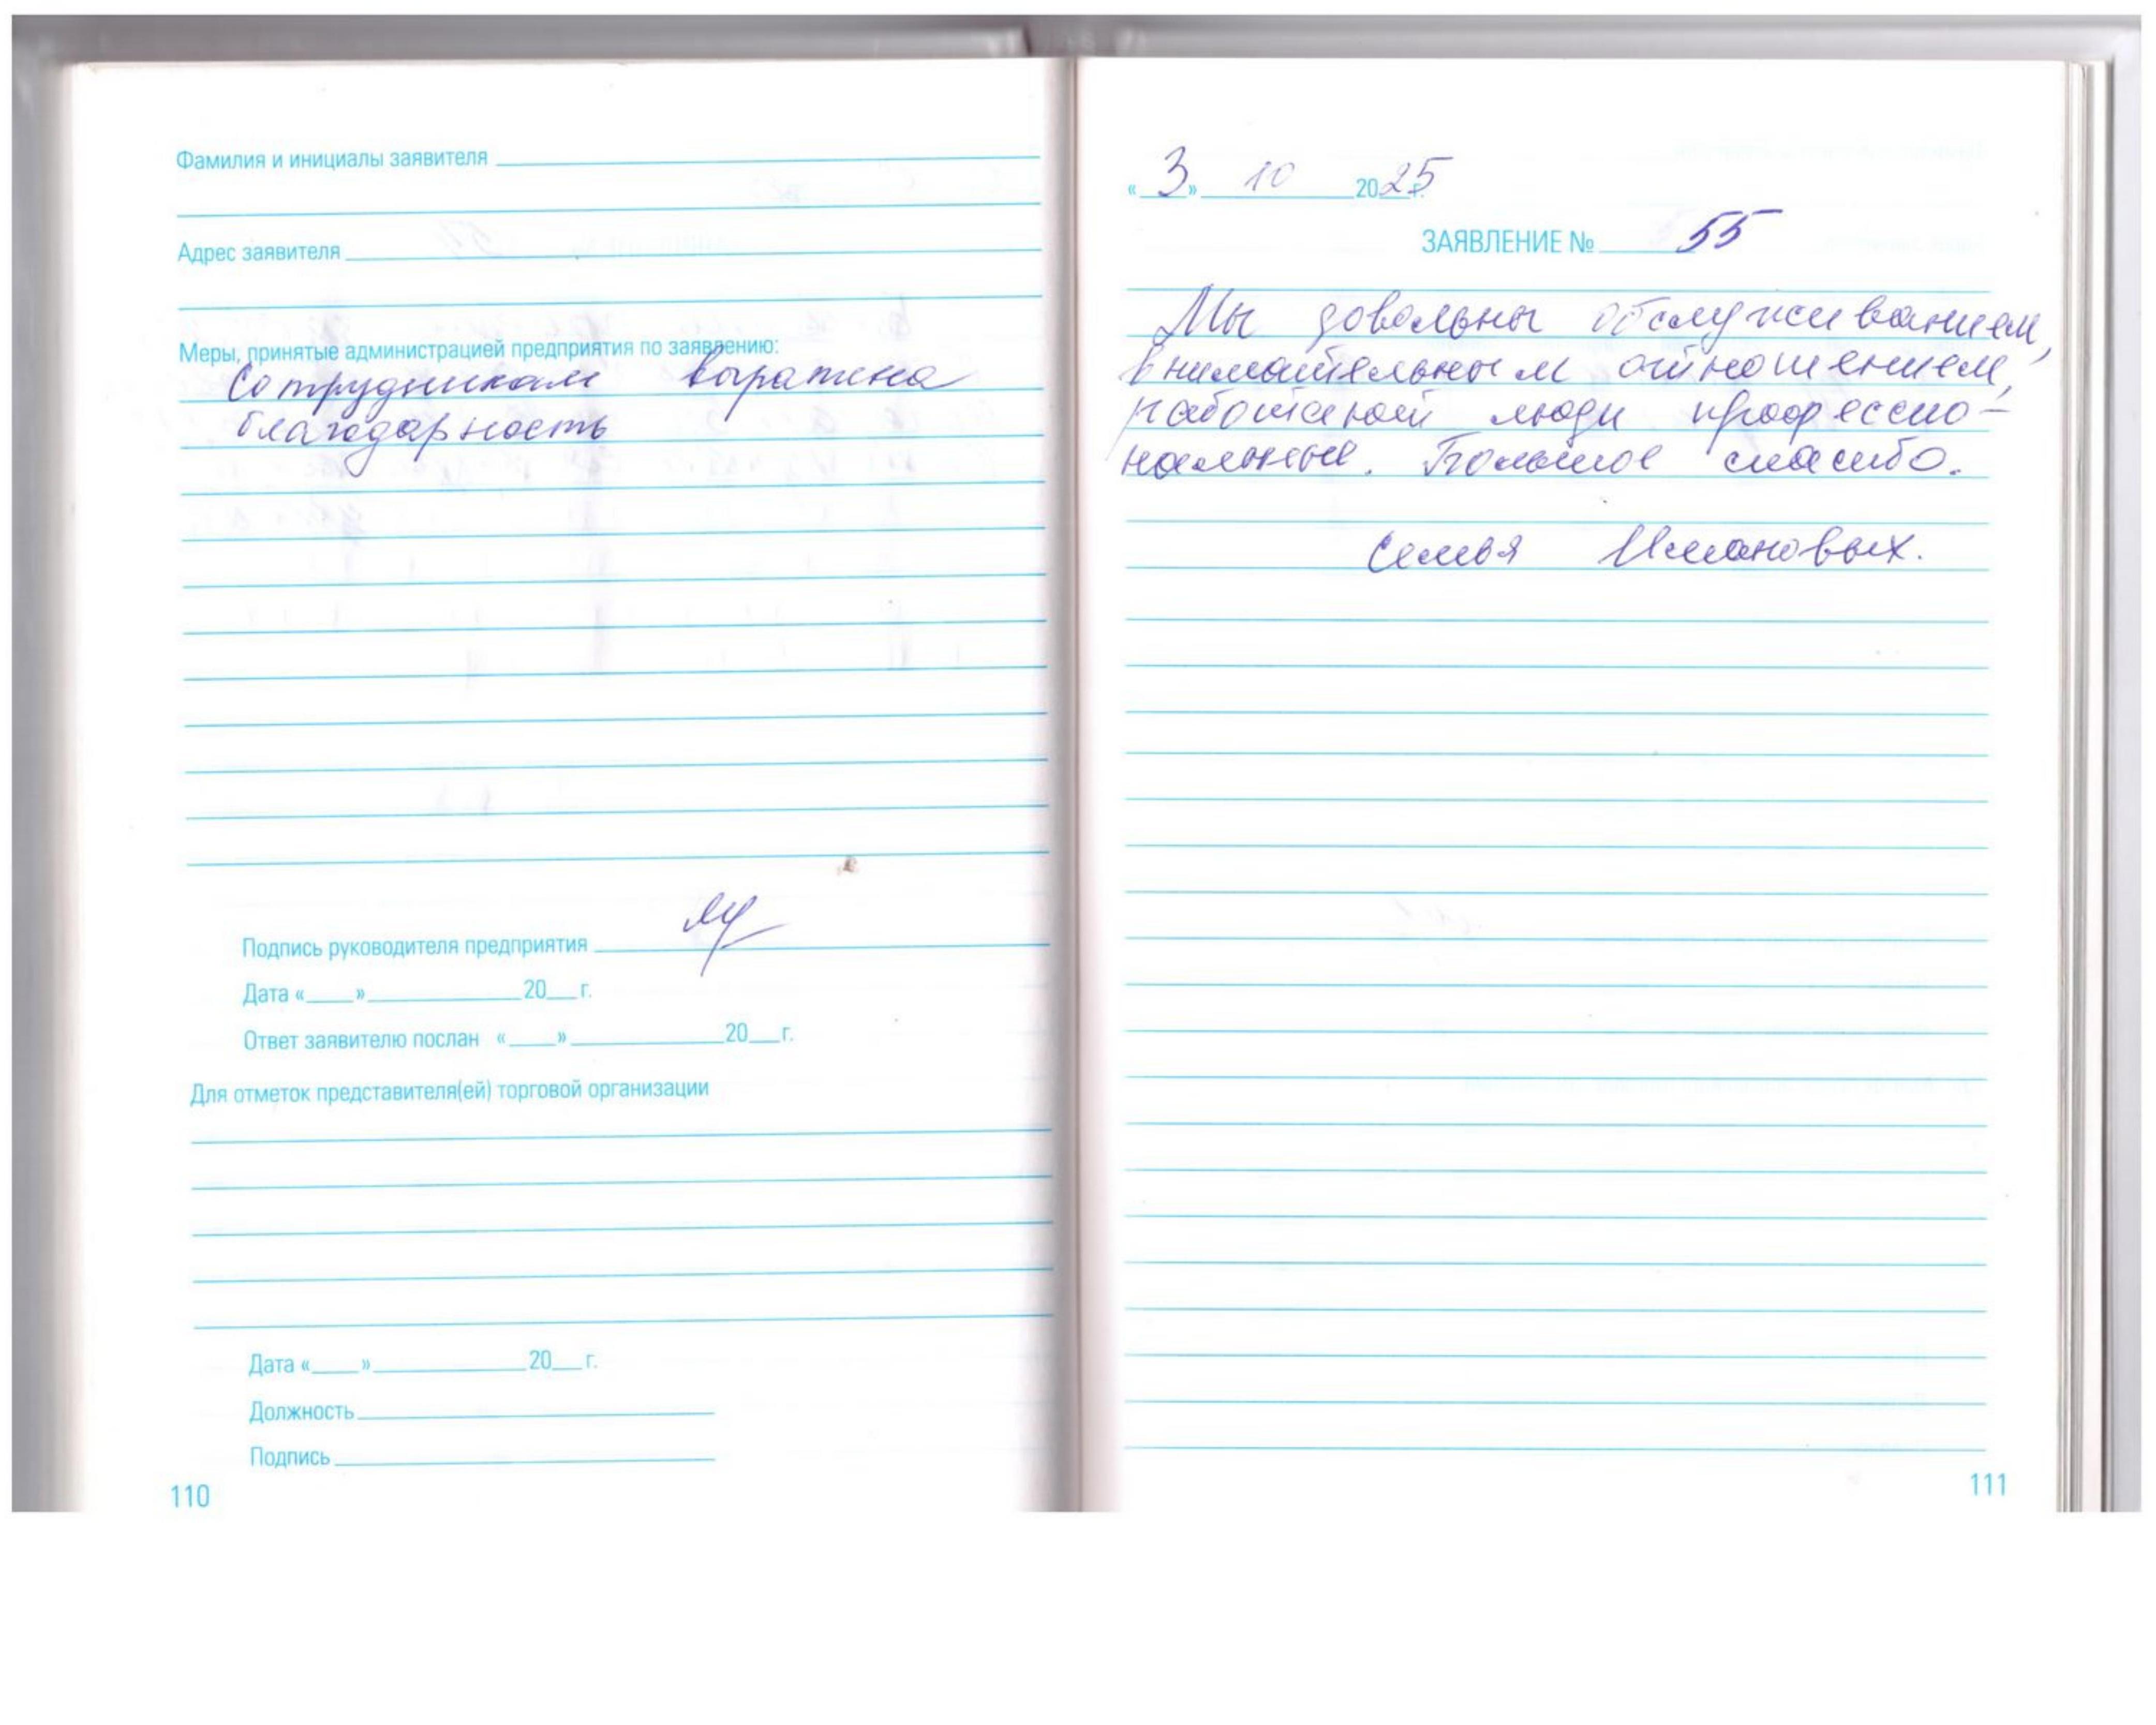 Фамилия и инициалы заявителя
Адрес заявителя
Меры, принятые администрацией предприятия по заявлению:
Сотрудникам выражена
благодарность
Подпись руководителя предприятия
Дата «____»____________20___г.
Ответ заявителю послан «____»____________20___г.
Для отметок представителя(ей) торговой организации
Дата «____»____________20___г.
Должность
Подпись
110
«3» 10 2025г.
ЗАЯВЛЕНИЕ № 55
Мы довольны обслуживанием,
внимательным отношением,
работают люди профессио-
нальные. Большое спасибо.
Семья Имановых.
111